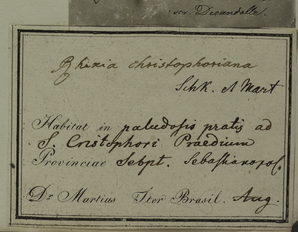 scr. Decandolle.
christophoriana
Schk. et Mart
Habitat in paludosis pratis ad
S. Cristophori Praedium
Provinciae Sebpt. Sebastianopol.
Dr Martius Iter Brasil. Aug.